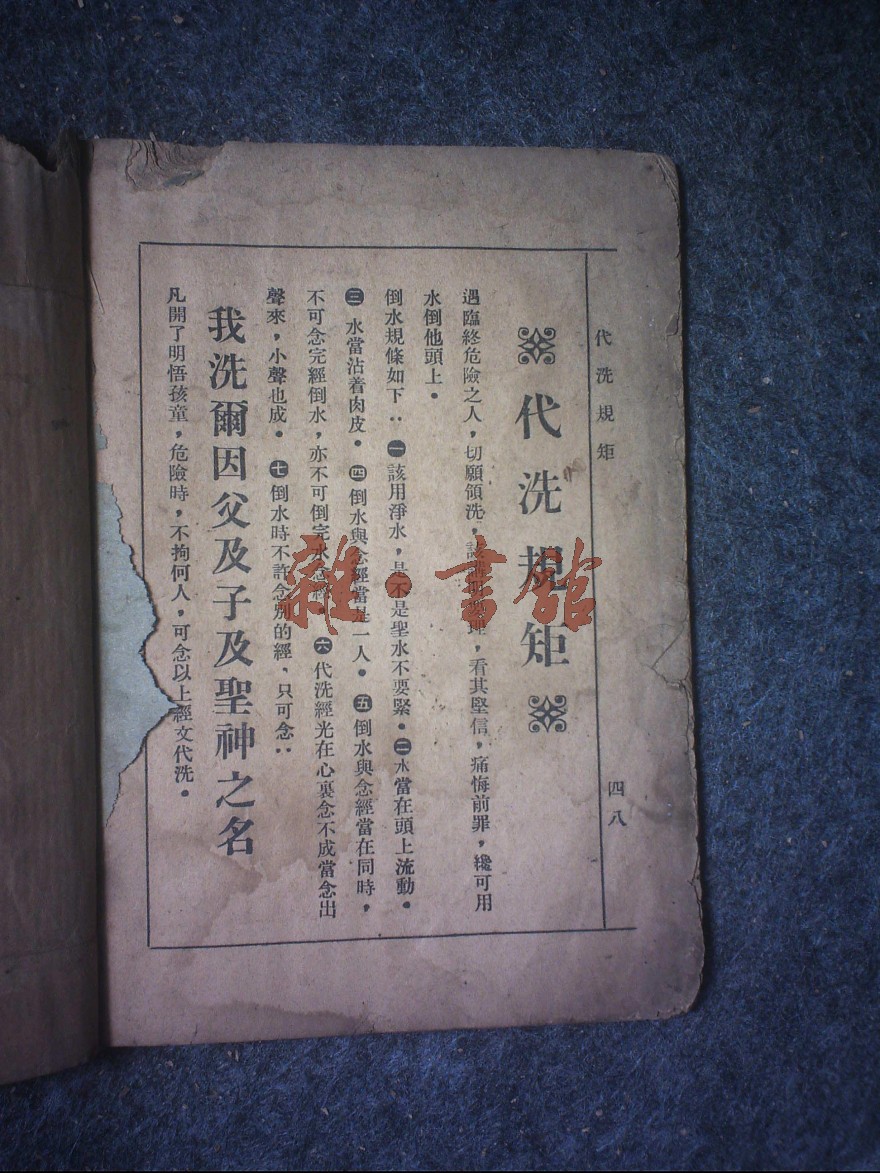 代洗規矩
四八
代洗規矩
遇臨終危險之人，切願領洗，該講明要理，看其堅信，痛悔前罪，纔可用
水倒他頭上。
倒水規條如下：㊀該用淨水，是不是聖水不要緊。㊁水當在頭上流動。
㊂水當沾着肉皮。㊃倒水與念經當是一人。㊄倒水與念經當在同時，
不可念完經倒水，亦不可倒完水念經。㊅代洗經光在心裏念不成當念出
聲來，小聲也成。㊆倒水時不許念別的經，只可念：
我洗爾因父及子及聖神之名
凡開了明悟孩童，危險時，不拘何人，可念以上經文代洗。
雜·書館